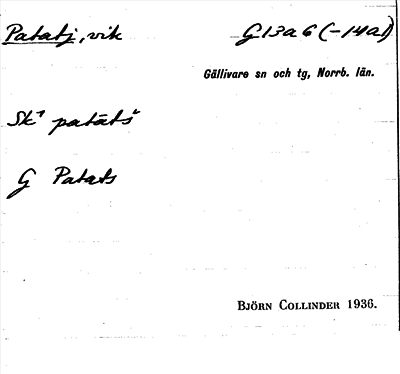 Patatj, vik G13a6 (-14a1)
Gällivare sn och tg, Norrb. län.
Sk¹ patātš
G Patats
BJÖRN COLLINDER 1936.